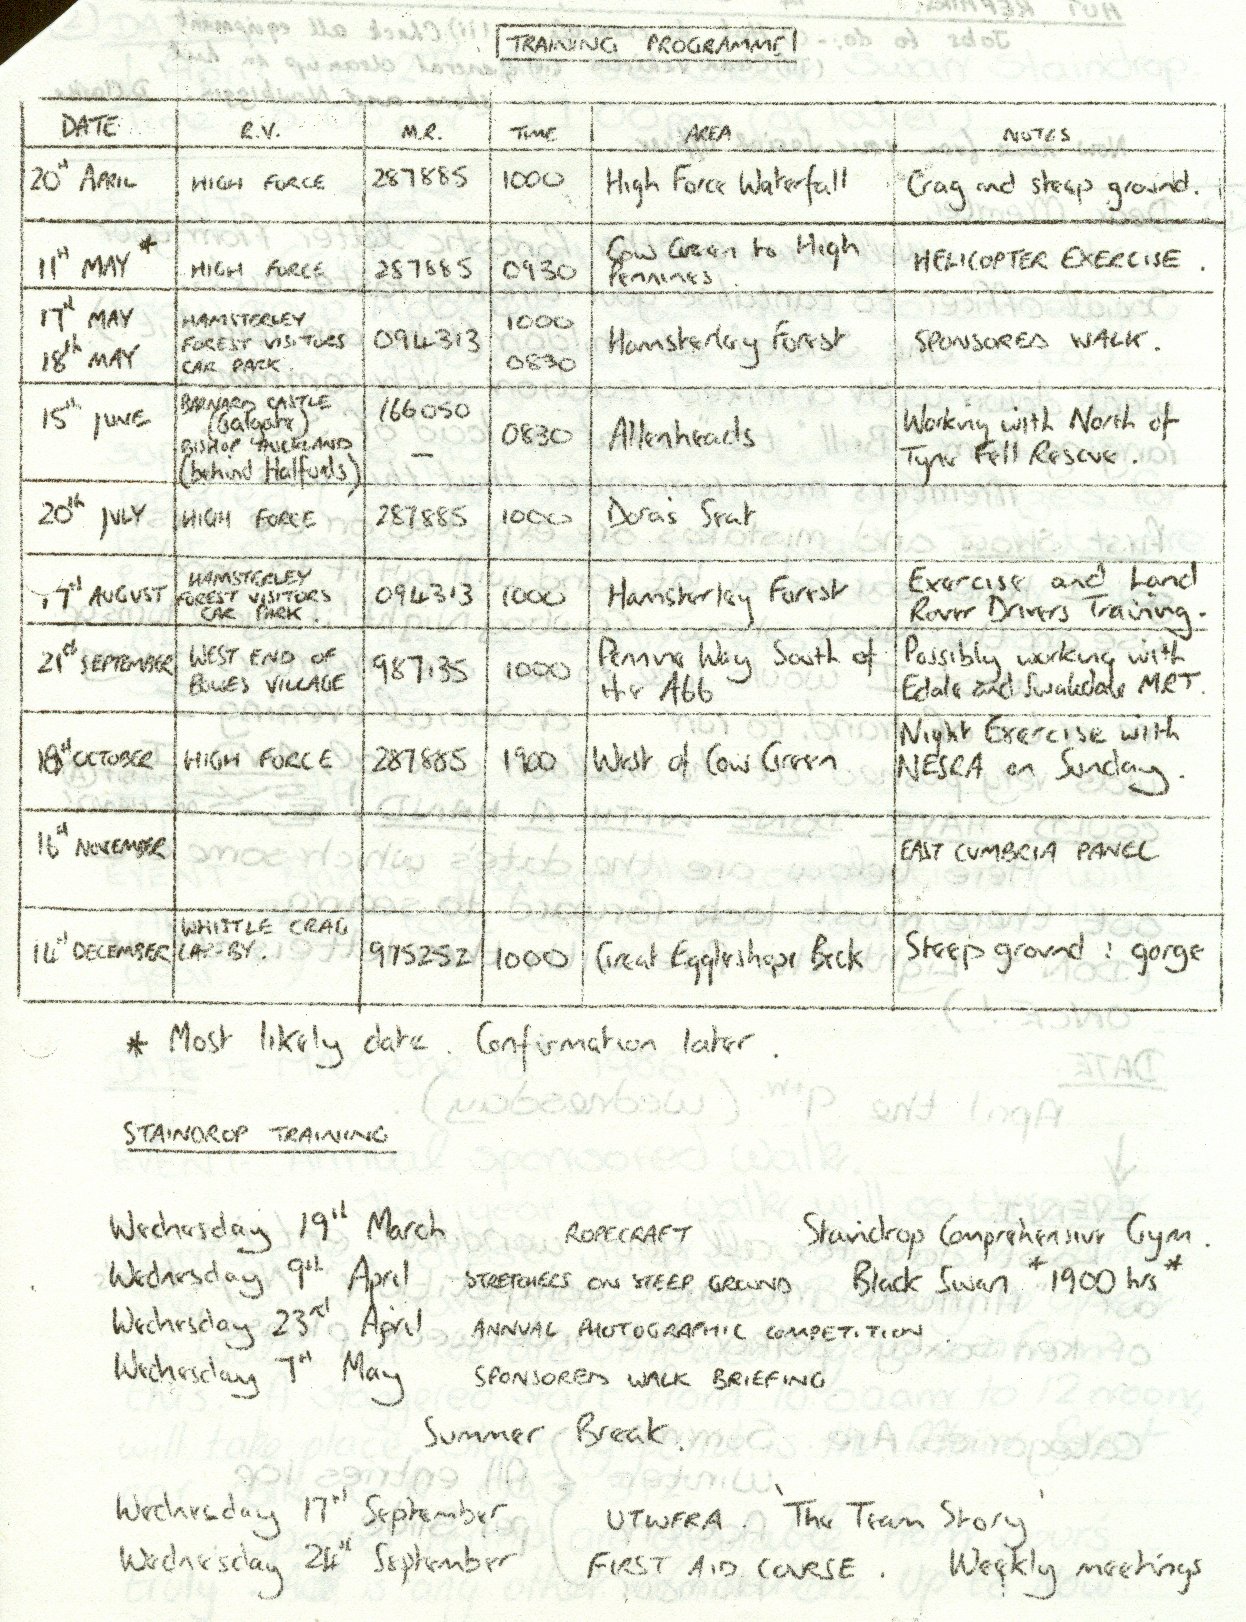 TRAINING PROGRAMME
DATE R.V. M.R. TIME AREA NOTES
20th APRIL HIGH FORCE 287885 1000 High Force Waterfall Crag and steep ground.
11th MAY * HIGH FORCE 287885 0930 Cow Green to High Pennines. HELICOPTER EXERCISE.
17th MAY
18th MAY
HAMSTERLEY
FOREST VISITORS
CAR PARK.
094313
1000
0830
Hamsterley Forest
SPONSORED WALK.
15th JUNE
BARNARD CASTLE
(Galgate)
BISHOP AUCKLAND
(behind Halfords)
166050
—
0830
Allenheads
Working with North of
Tyne Fell Rescue.
20th JULY HIGH FORCE 287885 1000 Dora's Seat
17th AUGUST
HAMSTERLEY
FOREST VISITORS
CAR PARK.
094313
1000
Hamsterley Forest
Exercise and Land
Rover Drivers Training.
21st SEPTEMBER
WEST END OF
BOWES VILLAGE
987135
1000
Pennine Way South of
the A66
Possibly working with
Edale and Swaledale MRT.
OCTOBER HIGH FORCE 287885 1900 West of Cow Green
Night Exercise with
NESRA on Sunday.
16th NOVEMBER EAST CUMBRIA PANEL
14th DECEMBER
WHISTLE CRAG
LAY-BY.
975252
1000
Great Eggleshope Beck
Steep ground : gorge
* Most likely date. Confirmation later.
STAINDROP TRAINING
Wednesday 19th March ROPECRAFT Staindrop Comprehensive Gym.
Wednesday 9th April STRETCHERS ON STEEP GROUND Black Swan *1900 hrs*
Wednesday 23rd April ANNUAL PHOTOGRAPHIC COMPETITION.
Wednesday 7th May SPONSORED WALK BRIEFING
Summer Break.
Wednesday 17th September UTWFRA. 'The Team Story'
Wednesday 24th September FIRST AID COURSE. Weekly meetings